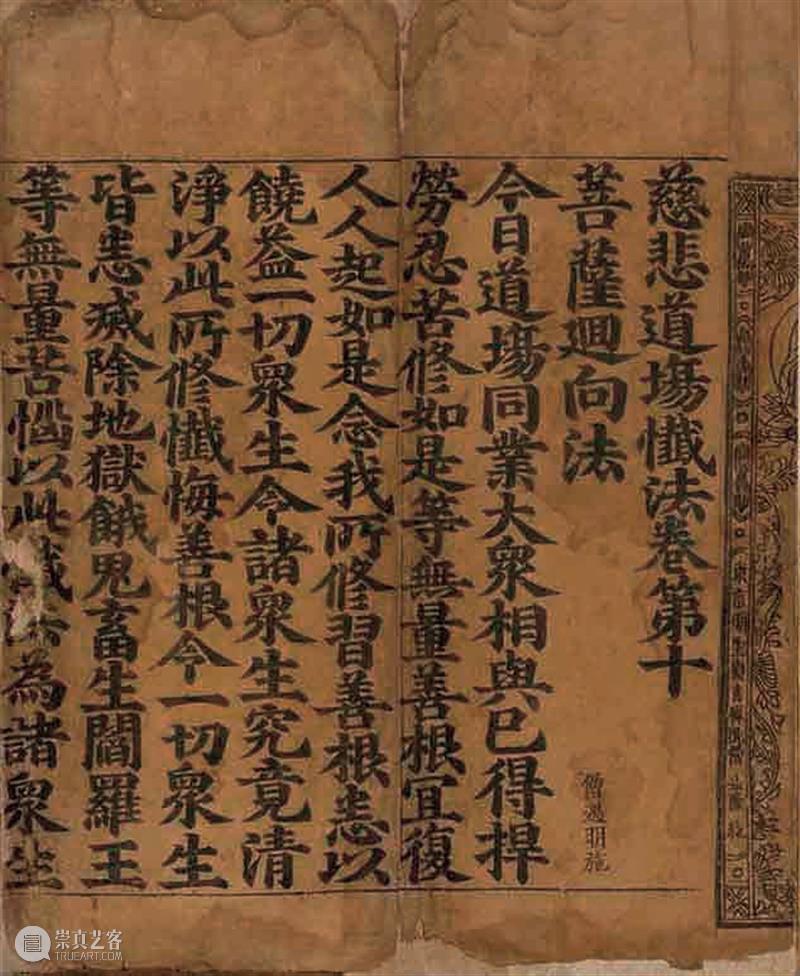 慈悲道場懺法卷第十
菩薩迴向法
僧遇明施
今日道場同業大眾相與已得捍
勞忍苦修如是等無量善根宜復
人人起如是念我所修習善根悉以
饒益一切眾生令諸眾生究竟清
淨以此所修懺悔善根令一切眾生
皆悉滅除地獄餓鬼畜生閻羅王
等無量苦惱以此懺法為諸眾生
崇真艺客